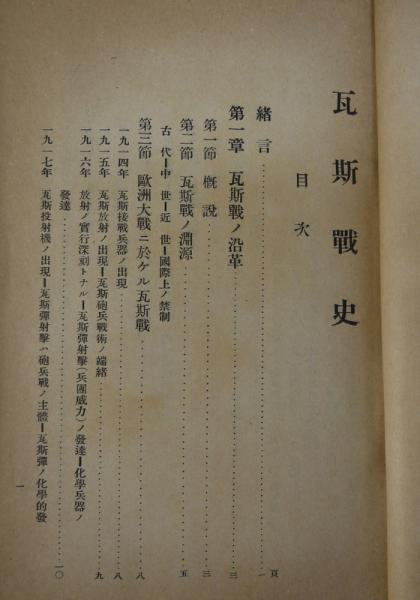 瓦斯戰史
目次
緒言……………………頁一
第一章 瓦斯戰ノ沿革……………………三
第一節 概說……………………三
第二節 瓦斯戰ノ淵源……………………五
古代ー中世ー近世ー國際上ノ禁制
第三節 歐洲大戰ニ於ケル瓦斯戰……………………八
一九一四年 瓦斯接戰兵器ノ出現……………………八
一九一五年 瓦斯放射ノ出現ー瓦斯砲兵戰術ノ端緖……………………九
一九一六年 放射ノ實行深刻トナルー瓦斯彈射擊(兵團威力)ノ發達ー化學兵器ノ
發達……………………一〇
一九一七年 瓦斯投射機ノ出現ー瓦斯彈射擊ハ砲兵戰ノ主體ー瓦斯彈ノ化學的發
一